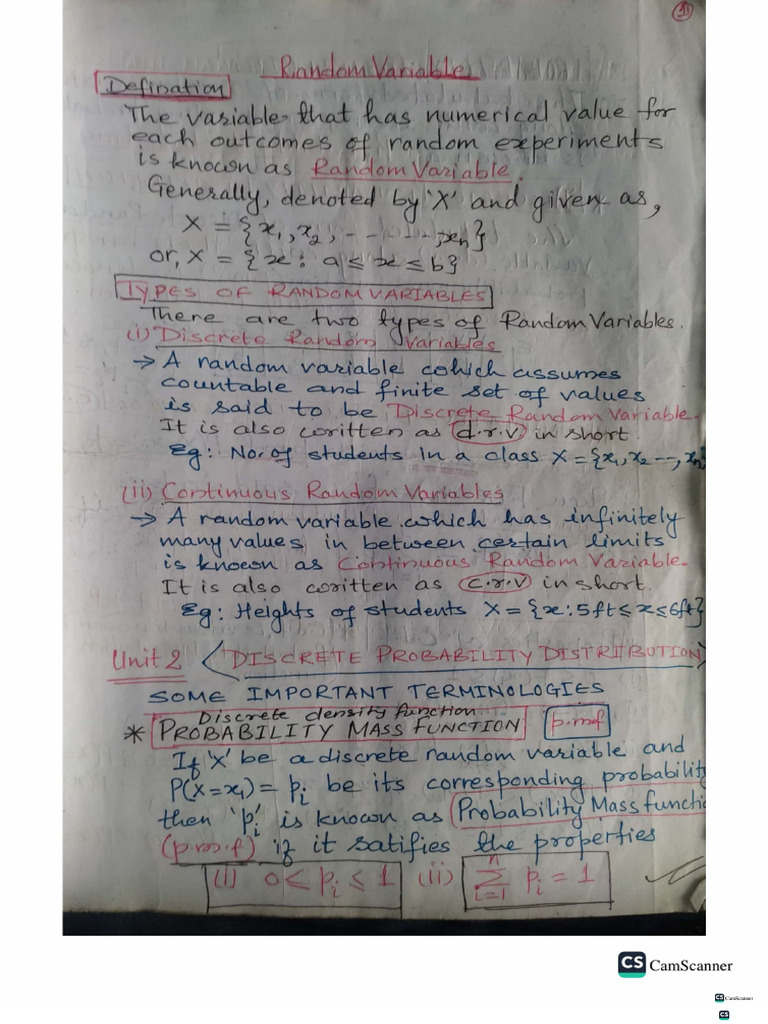 31
Random Variable
Defination
The variable that has numerical value for
each outcomes of random experiments
is known as Random Variable.
Generally, denoted by 'X' and given as,
X = {x₁, x₂, - - - - -, xₙ}
or, X = {x : a ≤ x ≤ b}
TYPES OF RANDOM VARIABLES
There are two types of Random Variables.
(i) Discrete Random Variables
→ A random variable which assumes
countable and finite set of values
is said to be Discrete Random Variable.
It is also written as d.r.v in short.
Eg: No. of students in a class X = {x₁, x₂ --, xₙ}
(ii) Continuous Random Variables
→ A random variable which has infinitely
many values in between certain limits
is known as Continuous Random Variable.
It is also written as c.r.v in short.
Eg: Heights of students X = {x : 5ft ≤ x ≤ 6ft}
Unit 2 < DISCRETE PROBABILITY DISTRIBUTION
SOME IMPORTANT TERMINOLOGIES
Discrete density function
* PROBABILITY MASS FUNCTION p.m.f
If 'X' be a discrete random variable and
P(X=x₁) = pᵢ be its corresponding probability
then 'pᵢ' is known as Probability Mass functio
(p.m.f) if it satifies the properties
(i) 0 < pᵢ ≤ 1 (ii) ∑ⁿᵢ₌₁ pᵢ = 1
CS CamScanner
CS CamScanner
CS